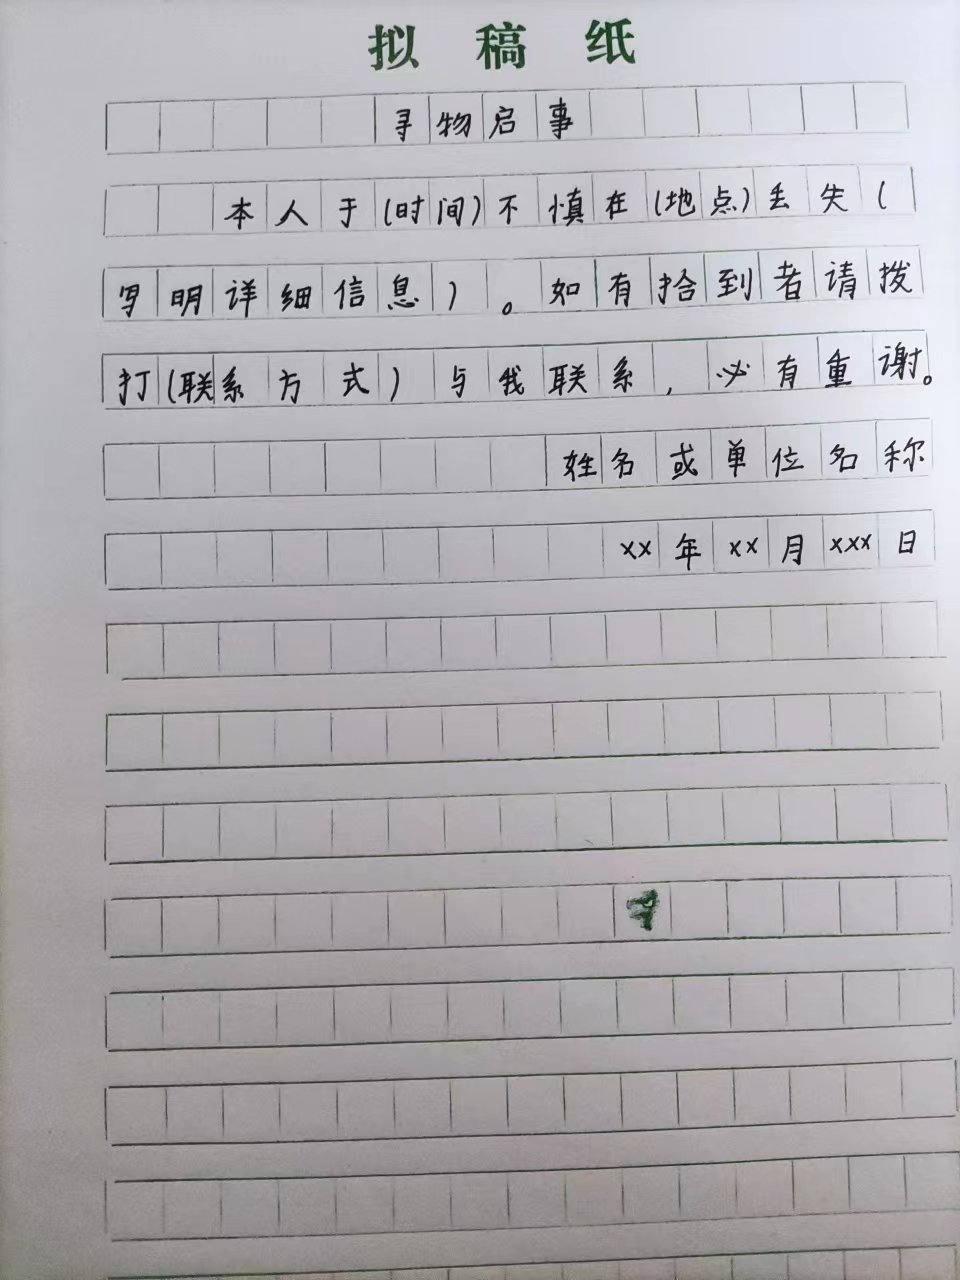 拟稿纸
寻物启事
本人于(时间)不慎在(地点)丢失(
写明详细信息)。如有拾到者请拨
打(联系方式)与我联系,必有重谢。
姓名或单位名称
xx年xx月xxx日